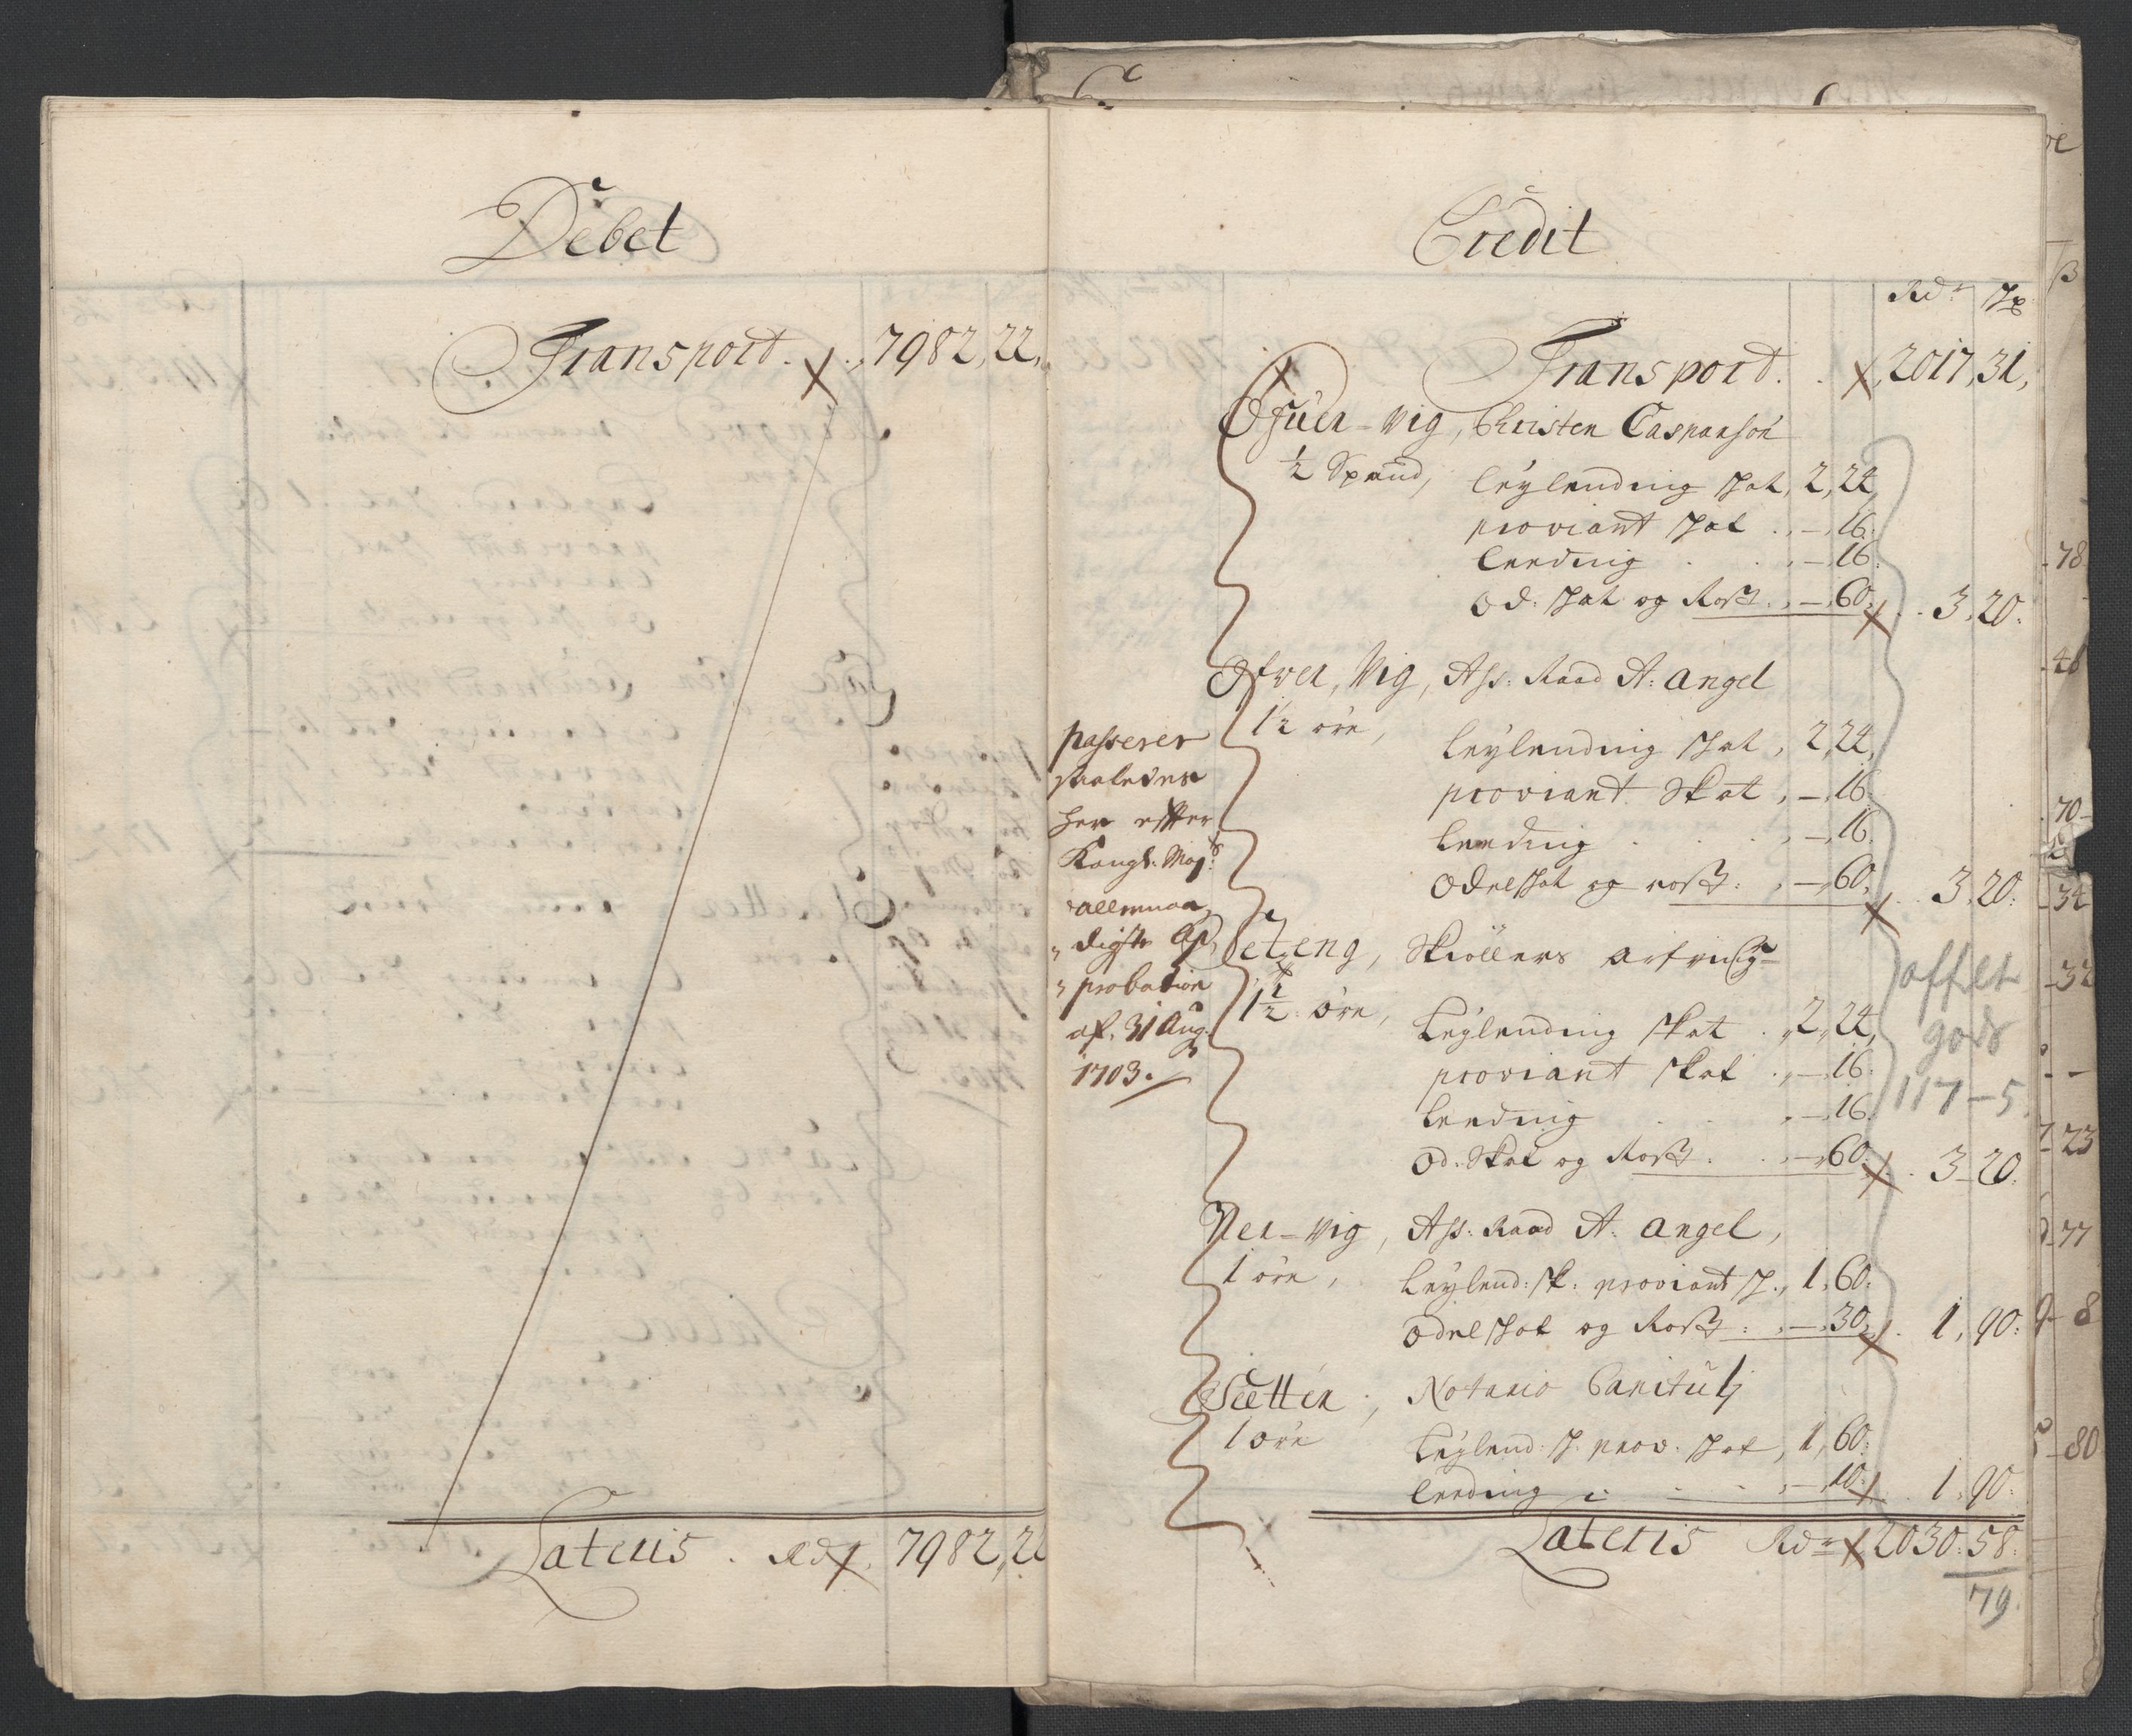 Debet
Transport . . 7982, 22,
Lateris . Rdr 7982, 22
Credit
Rdr ẞ
Transport . . 2017, 31,
Öfuer-Wig, Christen Casparsøn
½ Spand, leylending skat, 2, 24,
proviant skat . , - , 16.
leeding . . , - , 16.
Od. skat og Roß . , - , 60, . . 3, 20.
Ofver, Wig, Aß. Raad A: Angel
1½ øre, leylending skat , 2, 24,
proviant Skat , - , 16.
leeding . . . , - , 16.
Odelskat og roß : , - , 60, . . 3, 20:
passerer
saaledes
her effter
Kongl. Mayts
allernaa
digste Ap
probation
af. 31 Aug.
1703.
Seteng, Skiøllers
1½ øre, Leylending skat . , 2, 24,
proviant skat . , - , 16.
leeding . . , - , 16.
Od. Skat og Roß . . , - , 60. . . 3 - 20.
Ner-Wig, Aß. Raad A. Angel,
1 øre, Leylend: sk: proviant ß., 1, 60.
Odelskat og Roß : , - , 30, . 1, 90:
Sletten, Notario Capitulj
1 øre Leylend: ß. prov. skat, 1, 60.
leeding . . . , - , 10. . 1, 90.
Lateris Rdr 2030. 58.
79.
gods
117 - 5.